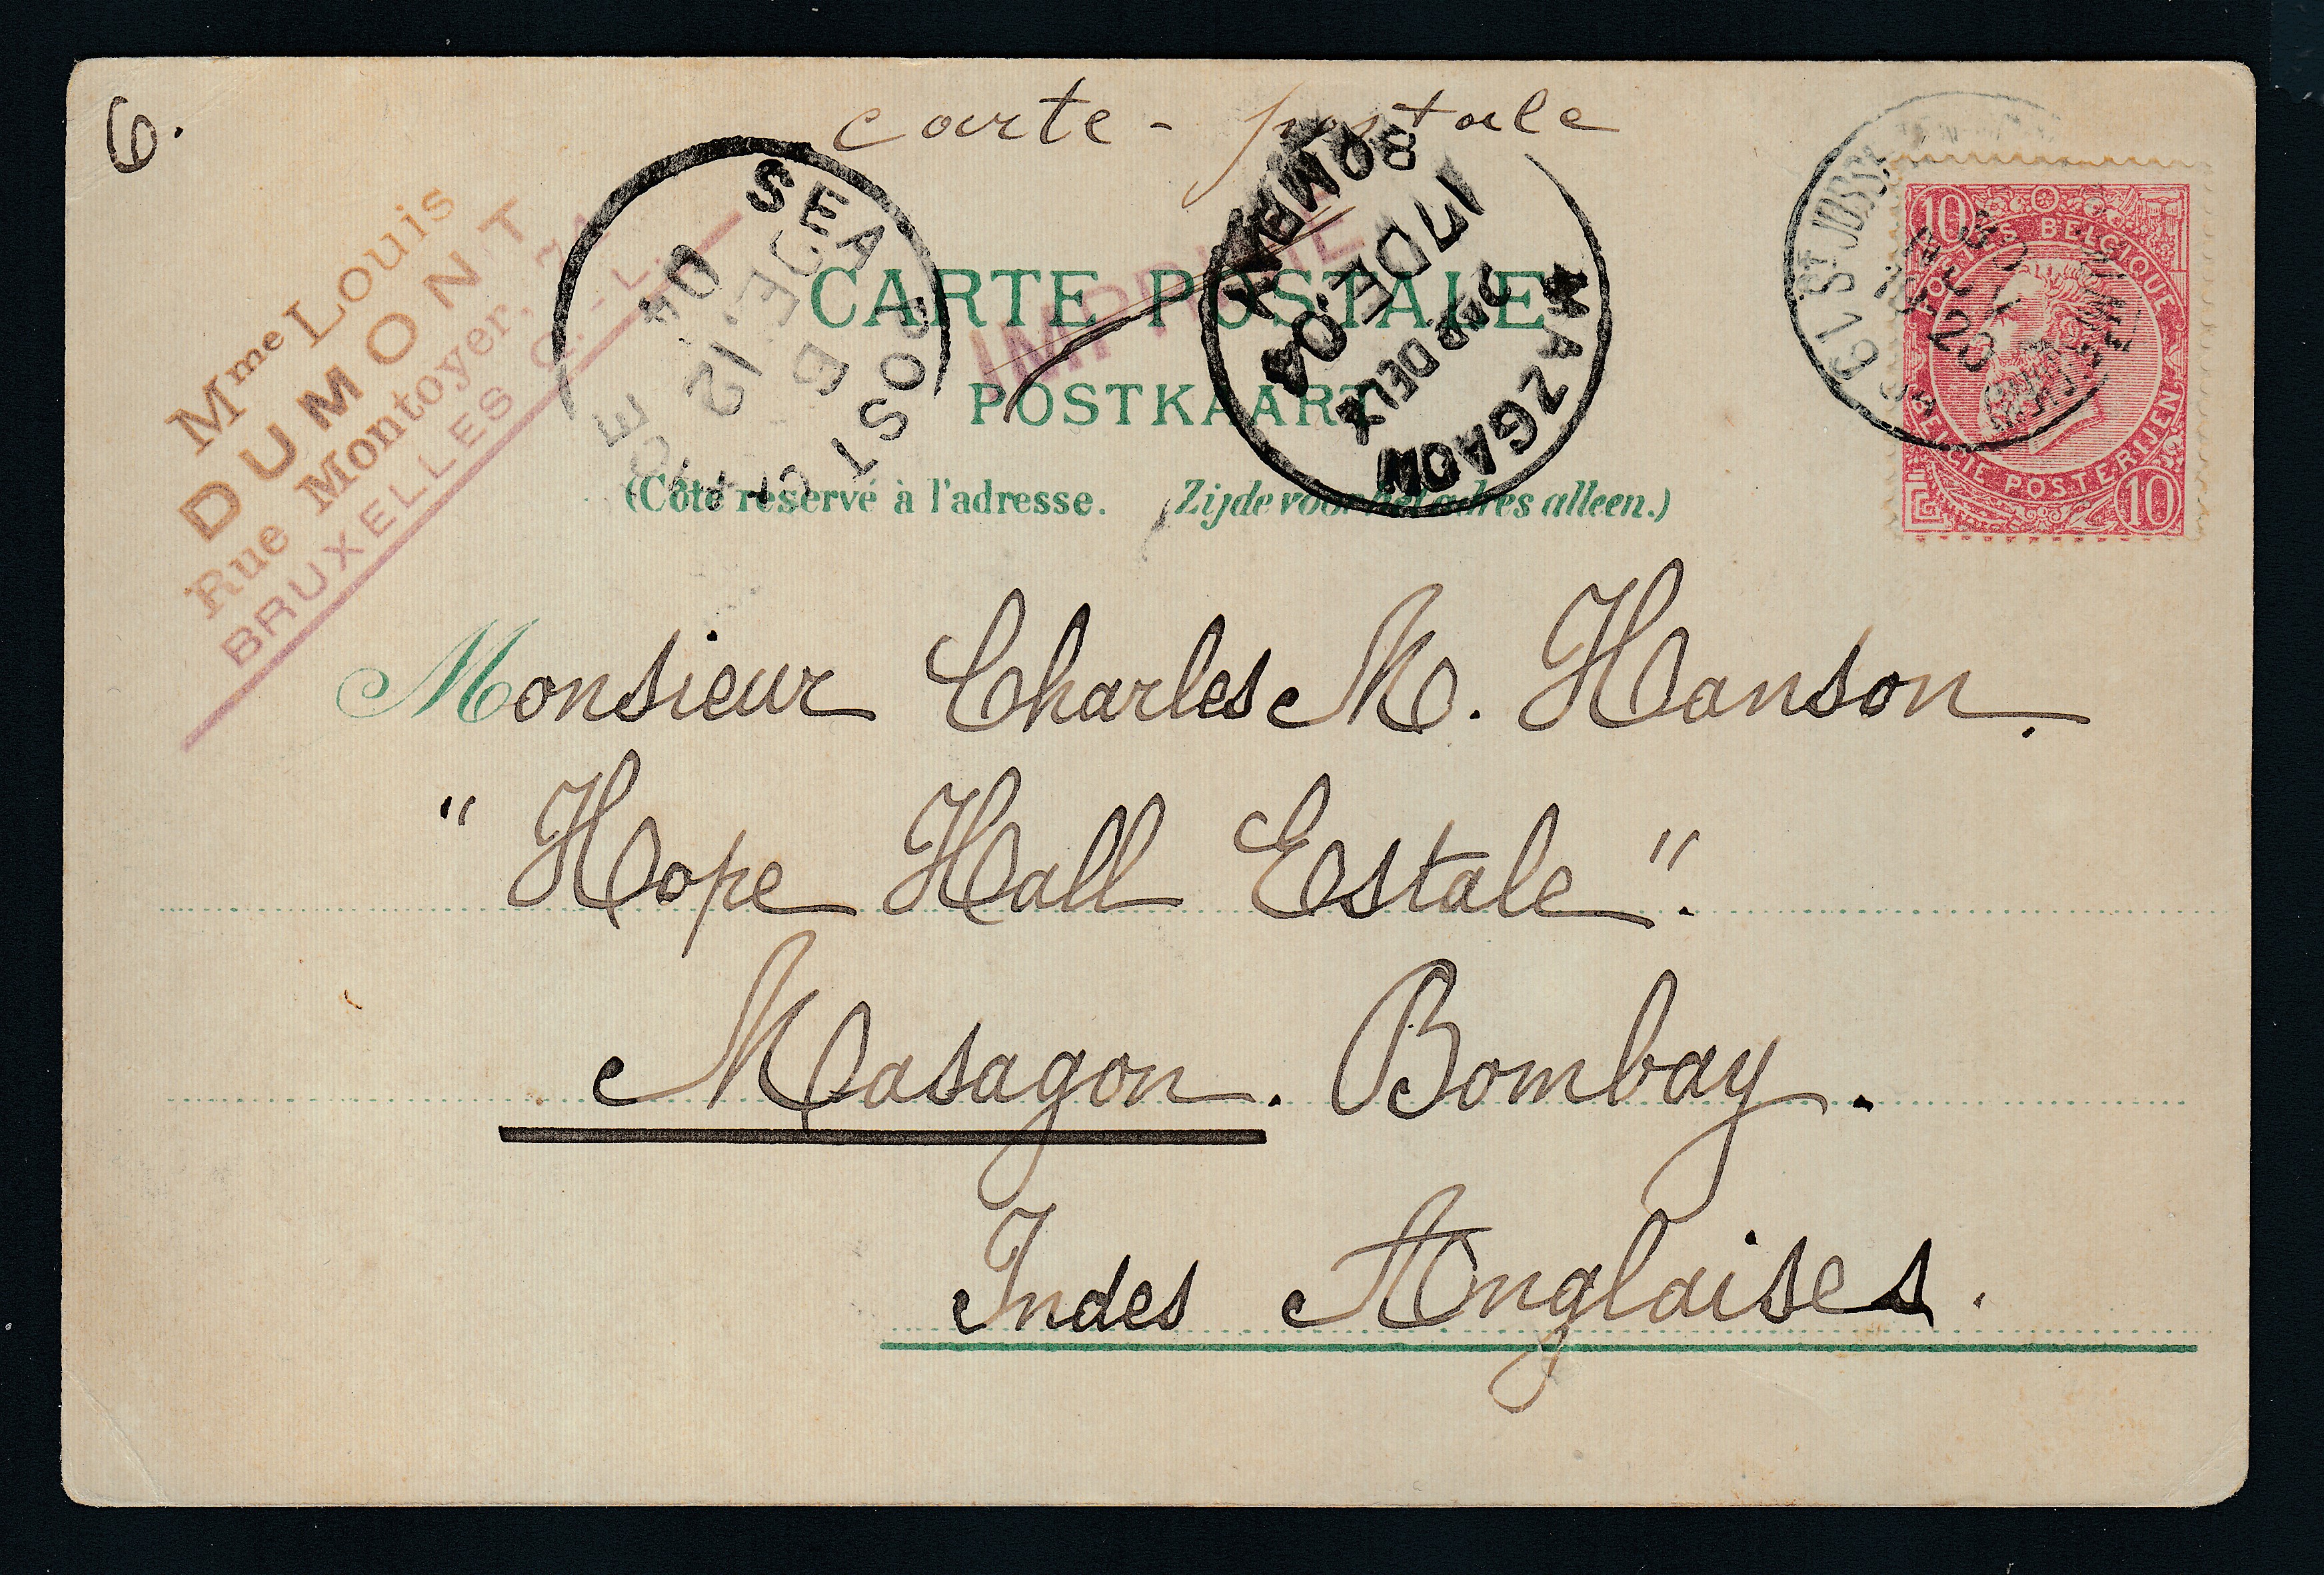 6.
carte - postale
Mme Louis
DUMONT
Rue Montoyer,
BRUXELLES Q.-L.
SEA POST OFFICE
DE 12
04
E
IMPRIMÉ
BOMBAY
17 DE. 04
MAZGAON
CARTE POSTALE
POSTKAART
(Côté réservé à l'adresse. Zijde voor het adres alleen.)
POSTES BELGIQUE
BELGIE POSTERIJEN
10
10
Monsieur Charles M. Hanson.
"Hope Hall Estate".
Masagon. Bombay.
Indes Anglaises.